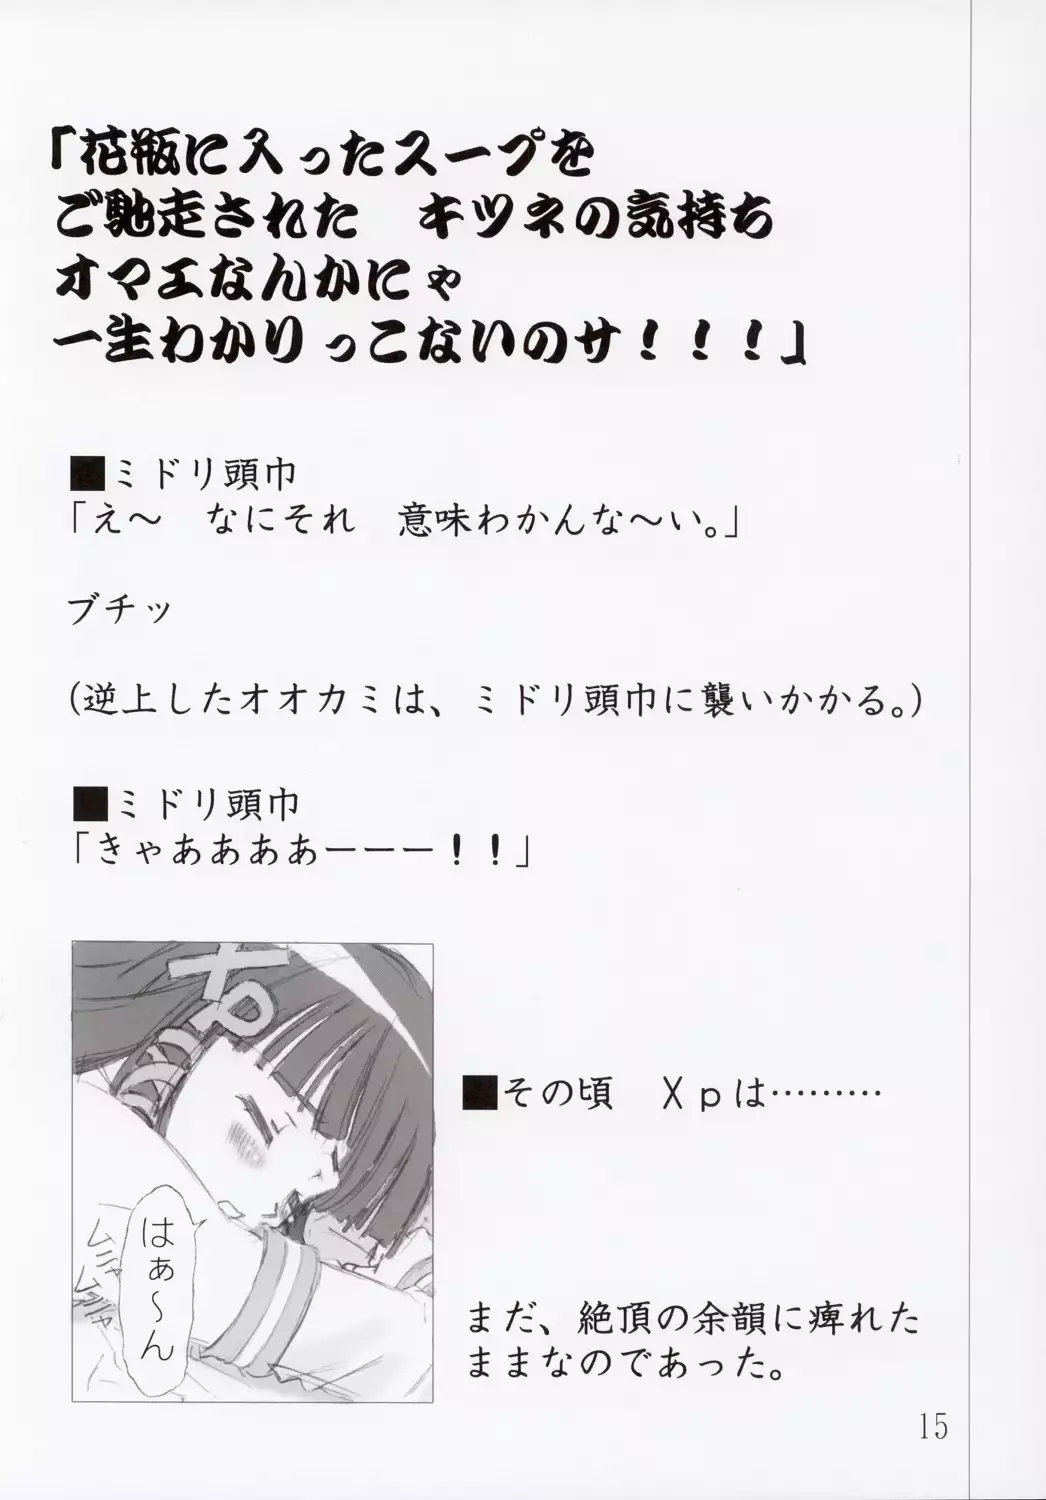 「花瓶に入ったスープを
ご馳走された　キツネの気持ち
オマエなんかにゃ
一生わかりっこないのサ！！！」
■ミドリ頭巾
「え〜　なにそれ　意味わかんな〜い。」
ブチッ
(逆上したオオカミは、ミドリ頭巾に襲いかかる。)
■ミドリ頭巾
「きゃああああーーー！！」
XP
はぁ〜ん
ムニャ
ムニャ
■その頃　Ｘｐは………
まだ、絶頂の余韻に痺れた
ままなのであった。
15